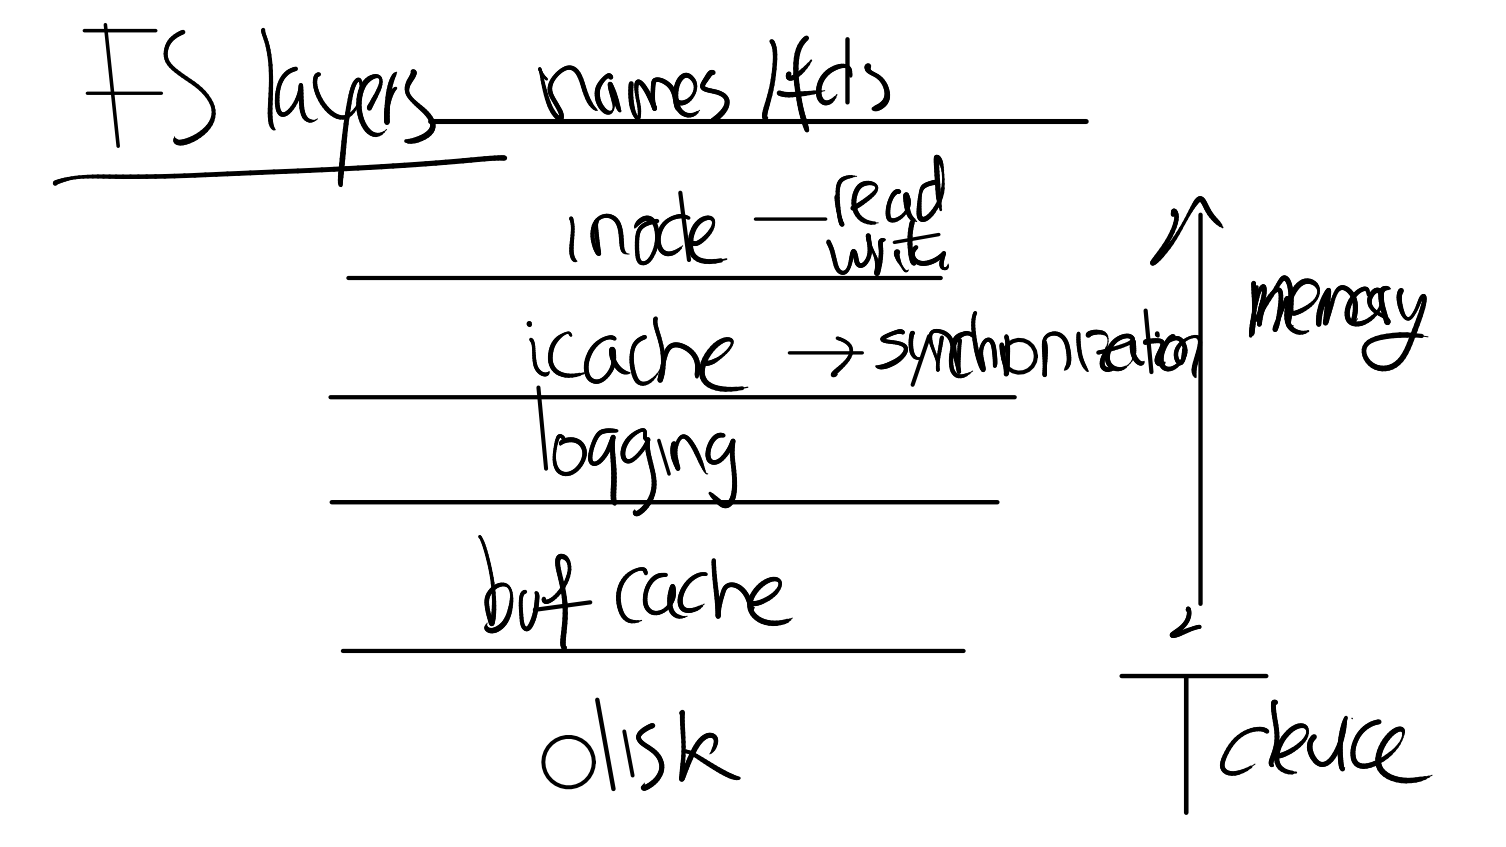 FS layers names /fds
inode — read
write
icache → synchronization
memory
logging
buf cache
disk
device